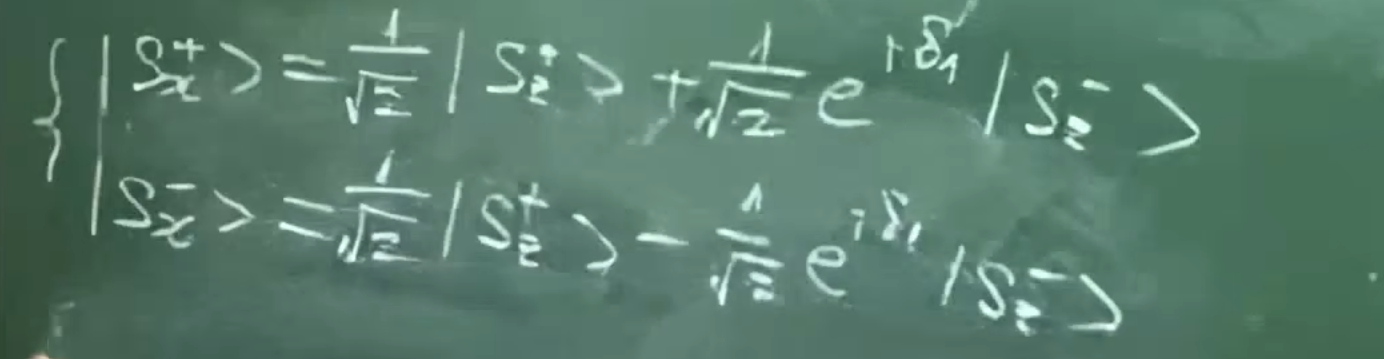 { |Sx+> = 1/√2 |Sz+> + 1/√2 e^{iδ1} |Sz->
|Sx-> = 1/√2 |Sz+> - 1/√2 e^{iδ1} |Sz->